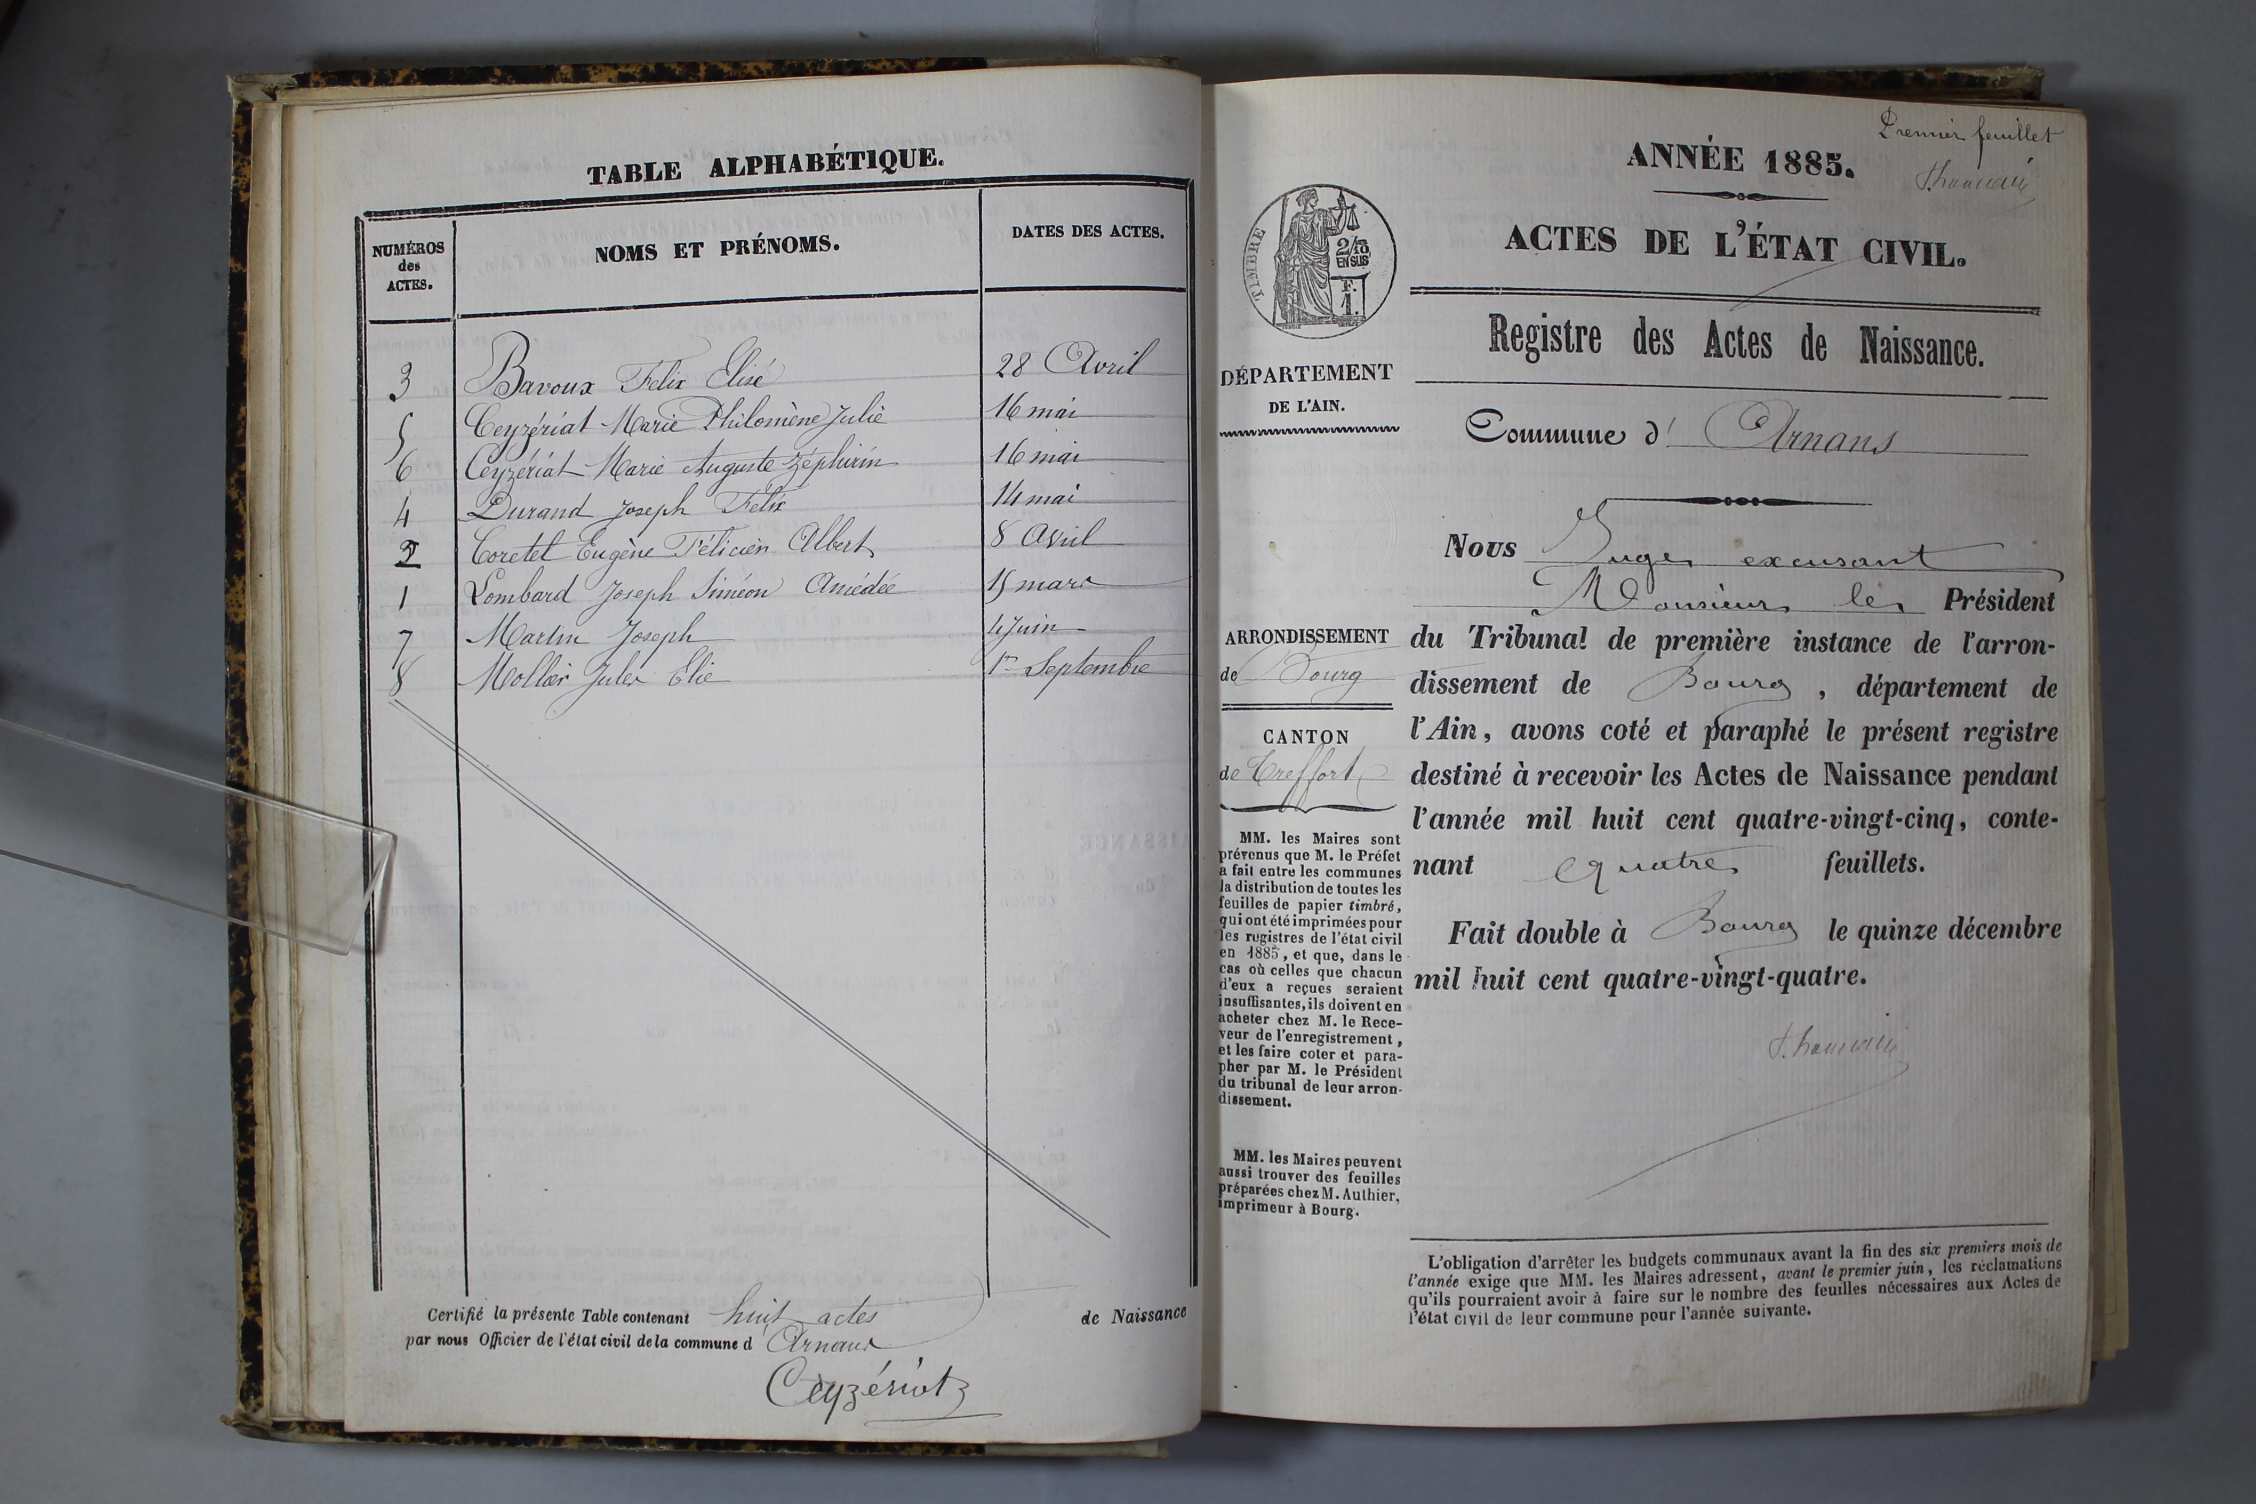 TABLE ALPHABÉTIQUE.
NUMÉROS
des
ACTES.
NOMS ET PRÉNOMS.
DATES DES ACTES.
3 Bavoux Felix Elisé 28 Avril
5 Ceyzériat Marie Philomène Julie 16 mai
6 Ceyzériat Marie Auguste Zéphirin 16 mai
4 Durand Joseph Félix 14 mai
2 Coretet Eugène Félicien Albert 8 Avril
1 Lombard Joseph Siméon Amédée 15 mars
7 Martin Joseph 4 Juin
8 Mollier Jules Elie 1er Septembre
Certifié la présente Table contenant huit actes de Naissance
par nous Officier de l'état civil de la commune d Arnans
Ceyzériat
Premier feuillet
ANNÉE 1885.
ACTES DE L'ÉTAT CIVIL.
TIMBRE
2/10
EN SUS
F.
1.
Registre des Actes de Naissance.
DÉPARTEMENT
DE L'AIN.
Commune d' Arnans
Nous Juge excusant
Monsieur le Président
du Tribunal de première instance de l'arron-
dissement de Bourg, département de
l'Ain, avons coté et paraphé le présent registre
destiné à recevoir les Actes de Naissance pendant
l'année mil huit cent quatre-vingt-cinq, conte-
nant quatre feuillets.
Fait double à Bourg le quinze décembre
mil huit cent quatre-vingt-quatre.
ARRONDISSEMENT
de Bourg
CANTON
de Treffort
MM. les Maires sont
prévenus que M. le Préfet
a fait entre les communes
la distribution de toutes les
feuilles de papier timbré,
qui ont été imprimées pour
les registres de l'état civil
en 1885, et que, dans le
cas où celles que chacun
d'eux a reçues seraient
insuffisantes, ils doivent en
acheter chez M. le Rece-
veur de l'enregistrement,
et les faire coter et para-
pher par M. le Président
du tribunal de leur arron-
dissement.
MM. les Maires peuvent
aussi trouver des feuilles
préparées chez M. Authier,
imprimeur à Bourg.
L'obligation d'arrêter les budgets communaux avant la fin des six premiers mois de
l'année exige que MM. les Maires adressent, avant le premier juin, les réclamations
qu'ils pourraient avoir à faire sur le nombre des feuilles nécessaires aux Actes de
l'état civil de leur commune pour l'année suivante.